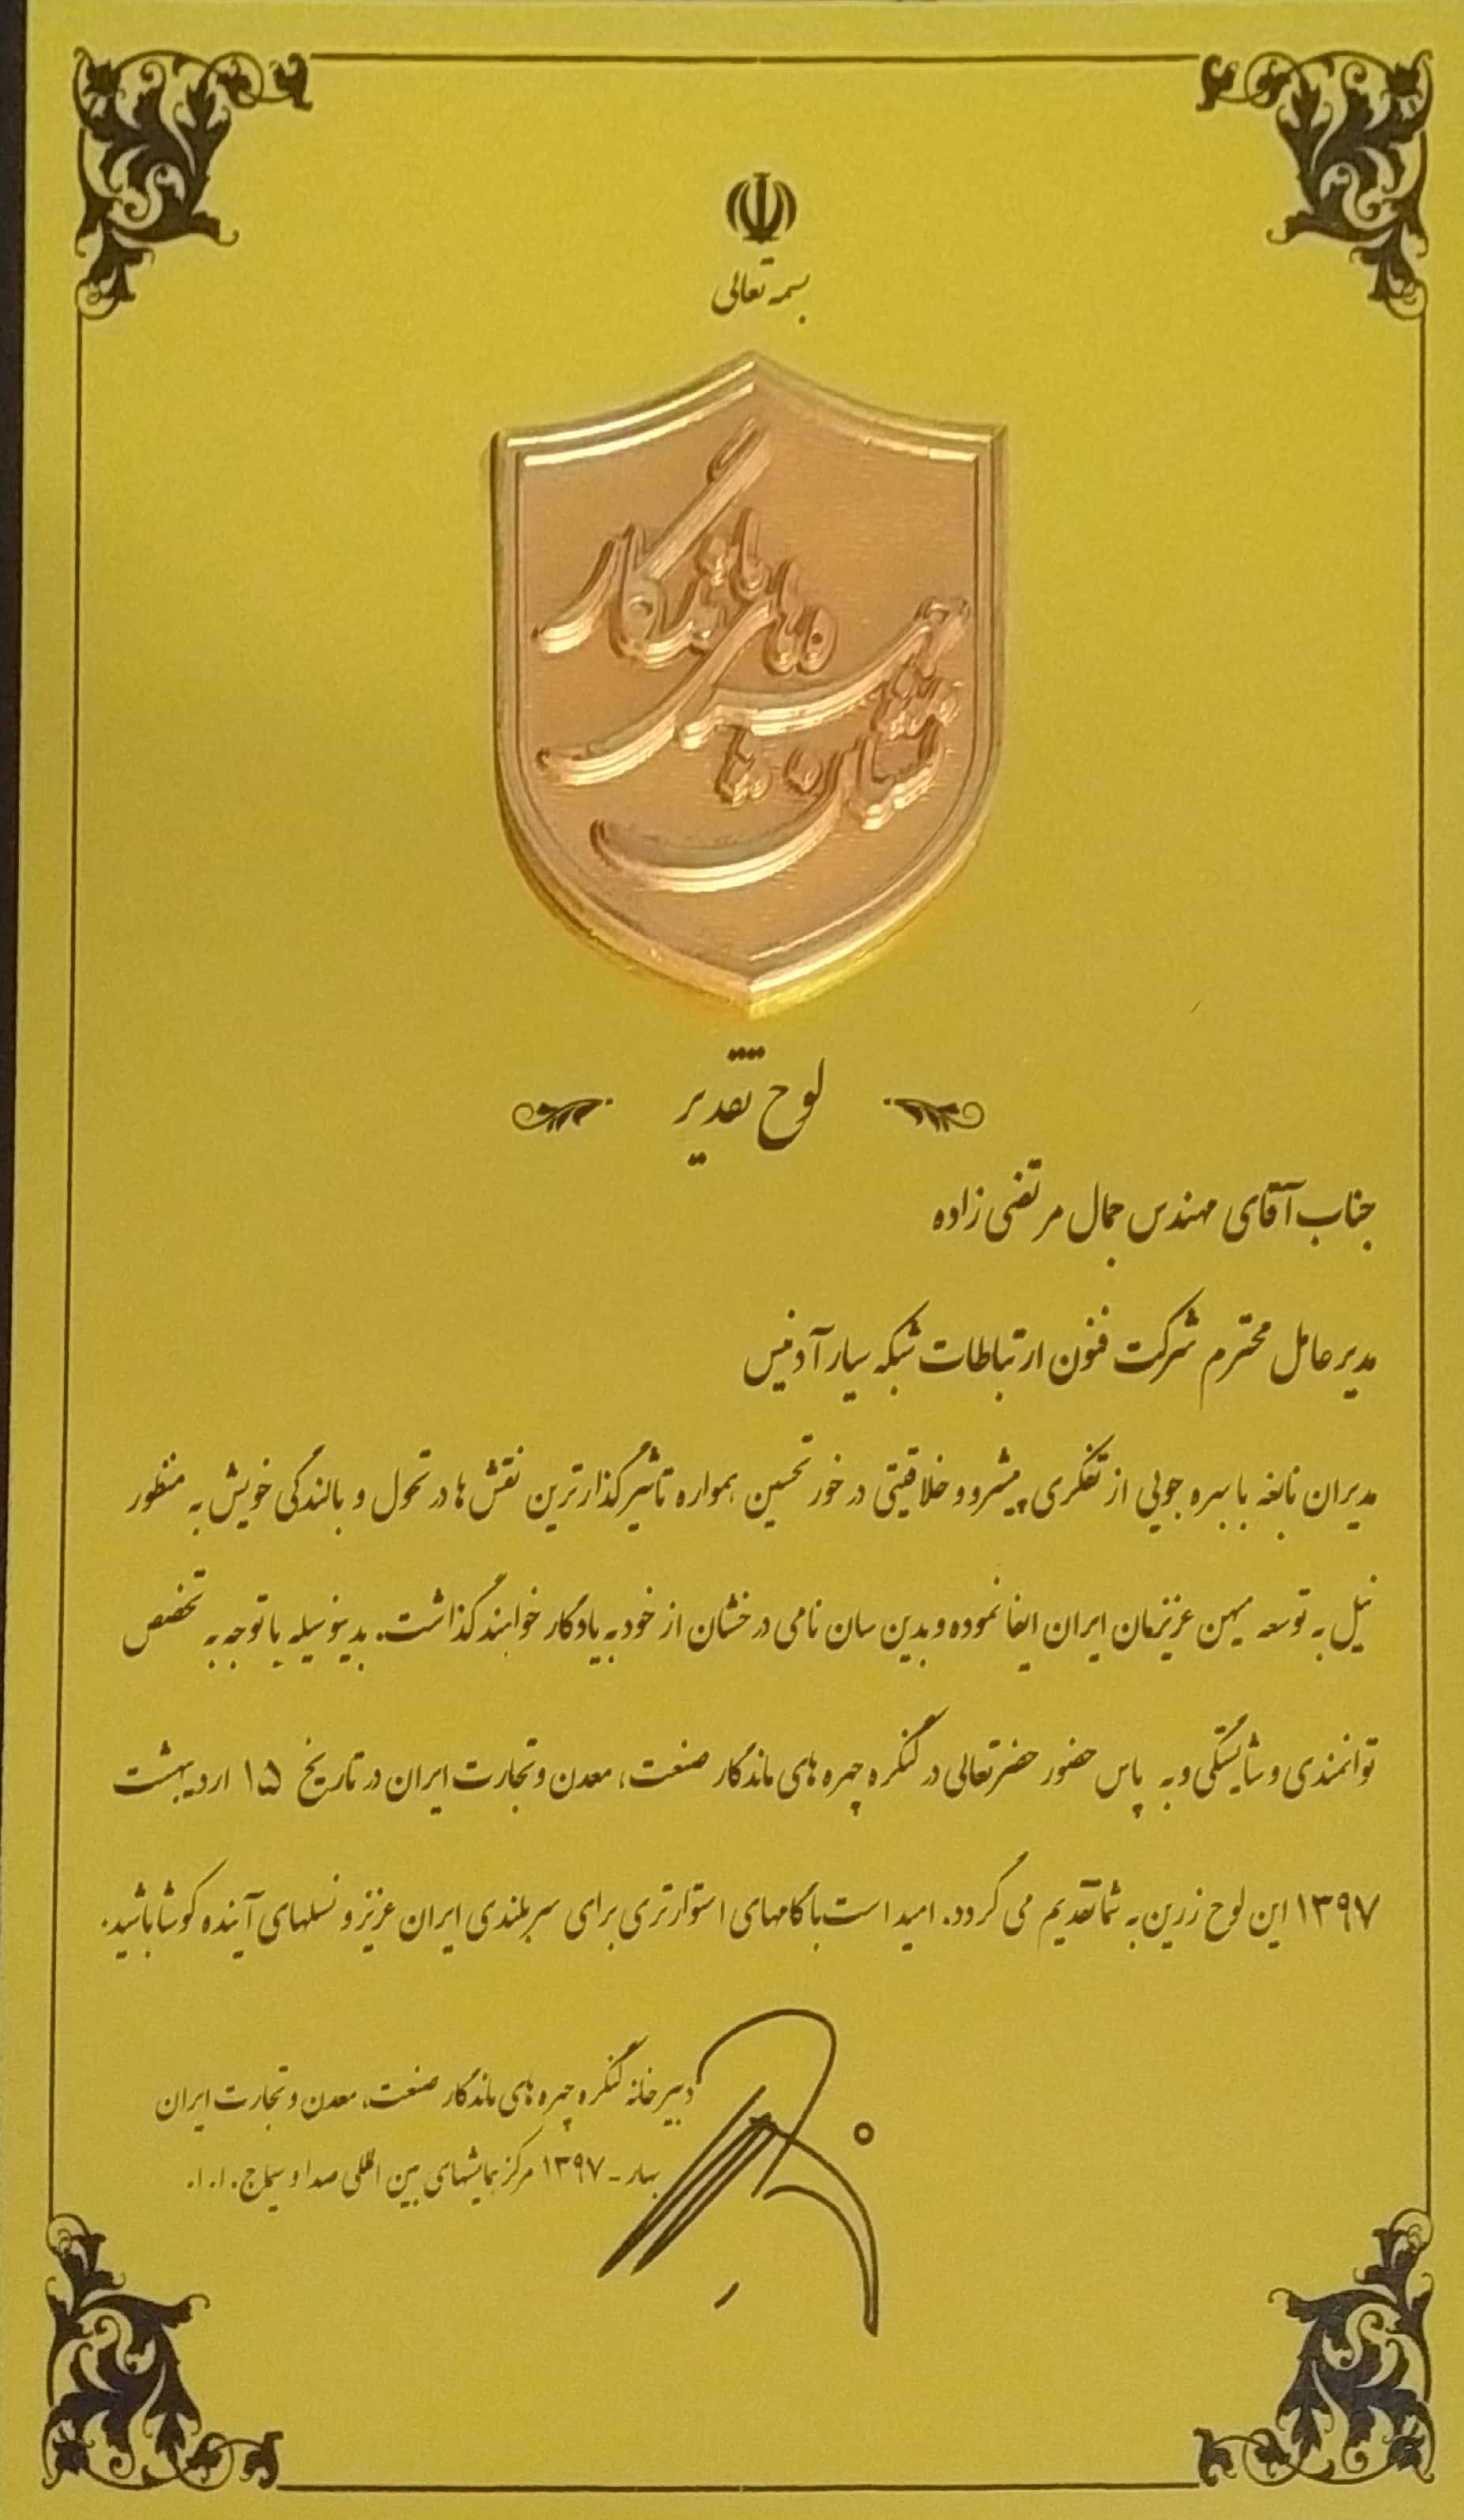 بسمه تعالی
نشان
چهره های
ماندگار
لوح تقدیر
جناب آقای مهندس جمال مرتضی زاده
مدیر عامل محترم شرکت فنون ارتباطات شبکه سیار آدنیس
مدیران نابغه با بهره جویی از تفکری پیشرو و خلاقیتی در خور تحسین همواره تأثیرگذارترین نقش ها در تحول و بالندگی خویش به منظور
نیل به توسعه میهن عزیزمان ایران ایفا نموده و بدین سان نامی درخشان از خود به یادگار خواهند گذاشت. بدینوسیله با توجه به تخصص
توانمندی و شایستگی و به پاس حضور حضرتعالی در کنگره چهره های ماندگار صنعت، معدن و تجارت ایران در تاریخ ۱۵ اردیبهشت
۱۳۹۷ این لوح زرین به شما تقدیم می گردد. امید است با گامهای استوارتری برای سربلندی ایران عزیز و نسلهای آینده کوشا باشید.
دبیرخانه کنگره چهره های ماندگار صنعت، معدن و تجارت ایران
بهار - ۱۳۹۷ مرکز همایشهای بین المللی صدا و سیما ج.ا.ا.